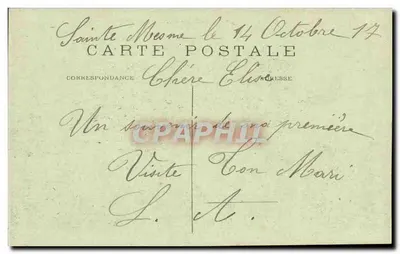 Sainte Mesme le 14 Octobre 17
CARTE POSTALE
CORRESPONDANCE ADRESSE
Chère Elise
Un souvenir de ma première
CPAPHIL
Visite Ton Mari
L. A.